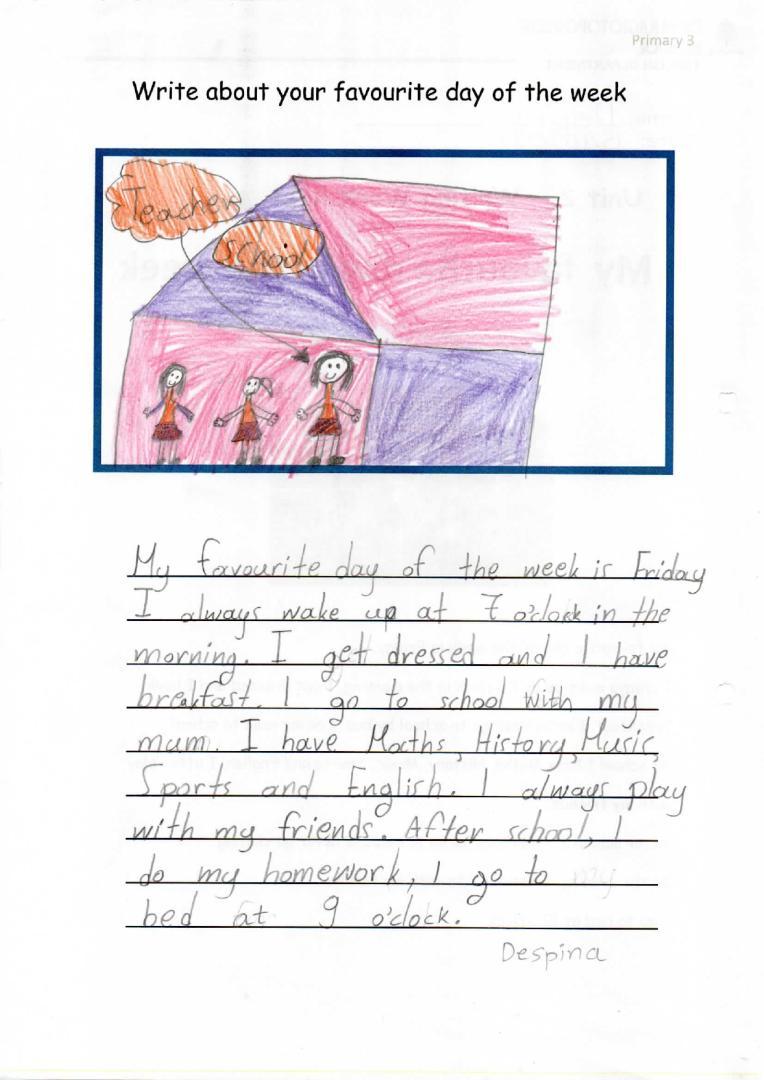 Primary 3
Write about your favourite day of the week
Teacher
School
My favourite day of the week is Friday
I always wake up at 7 o'clock in the
morning. I get dressed and I have
breakfast. I go to school with my
mum. I have Maths, History, Music,
Sports and English. I always play
with my friends. After school, I
do my homework, I go to
bed at 9 o'clock.
Despina